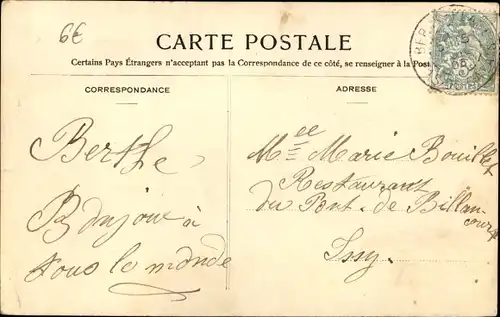 6€
CARTE POSTALE
Certains Pays Étrangers n'acceptant pas la Correspondance de ce côté, se renseigner à la Post
CORRESPONDANCE
ADRESSE
Berthe
Bonjour à
tous le monde
Mlle Marie Bouillet
Restaurant
du Pont de Billan-
court
Issy.